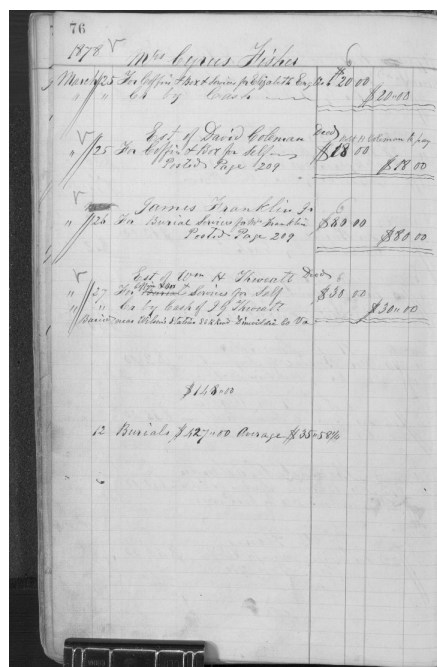 76
1878 Mrs Cyrus Fisher
March 25 For Coffin & Box & Services for Elizabeth $20.00
" " Cr by Cash $20.00
Est of David Coleman Decd
" 25 For Coffin & Box for Self $18 00
Posted Page 209 $18 00
James Franklin Jr
" 26 For Burial Services for Mr Franklin $80 00
Posted Page 209 $80.00
Est of Wm H Theweatt Decd
" 27 For Coffin & Box Burial Services for Self $30 00
" " Cr by Cash of J J Theweatt $30.00
Buried near Wilsons Station Dinwiddie Co Va
$148.00
12 Burials $427.00 Average $35.58⅓